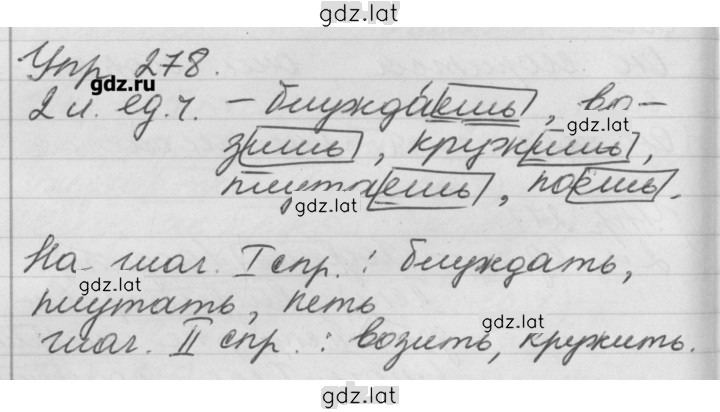 gdz.lat
Упр. 278.
gdz.ru
2 л. ед.ч. – блуждаешь, во-
gdz.lat
зишь, кружишь,
плутаешь, поёшь.
gdz.lat
На- глаг. I спр. : блуждать,
gdz.lat
плутать, петь
gdz.lat
глаг. II спр. : возить, кружить.
gdz.lat